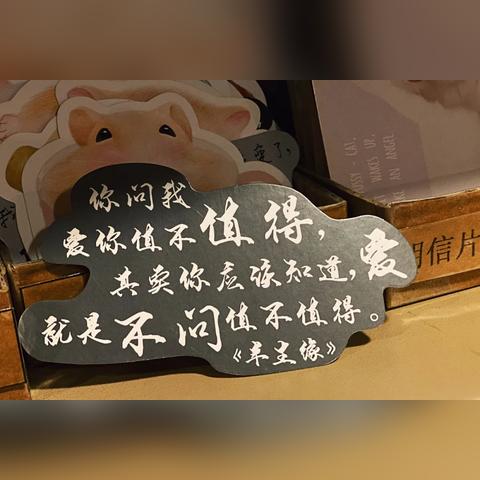 你问我
爱你值不值得，
其实你应该知道，爱
就是不问值不值得。
《半生缘》
明信片
WAKES UP,
AN ANGEL